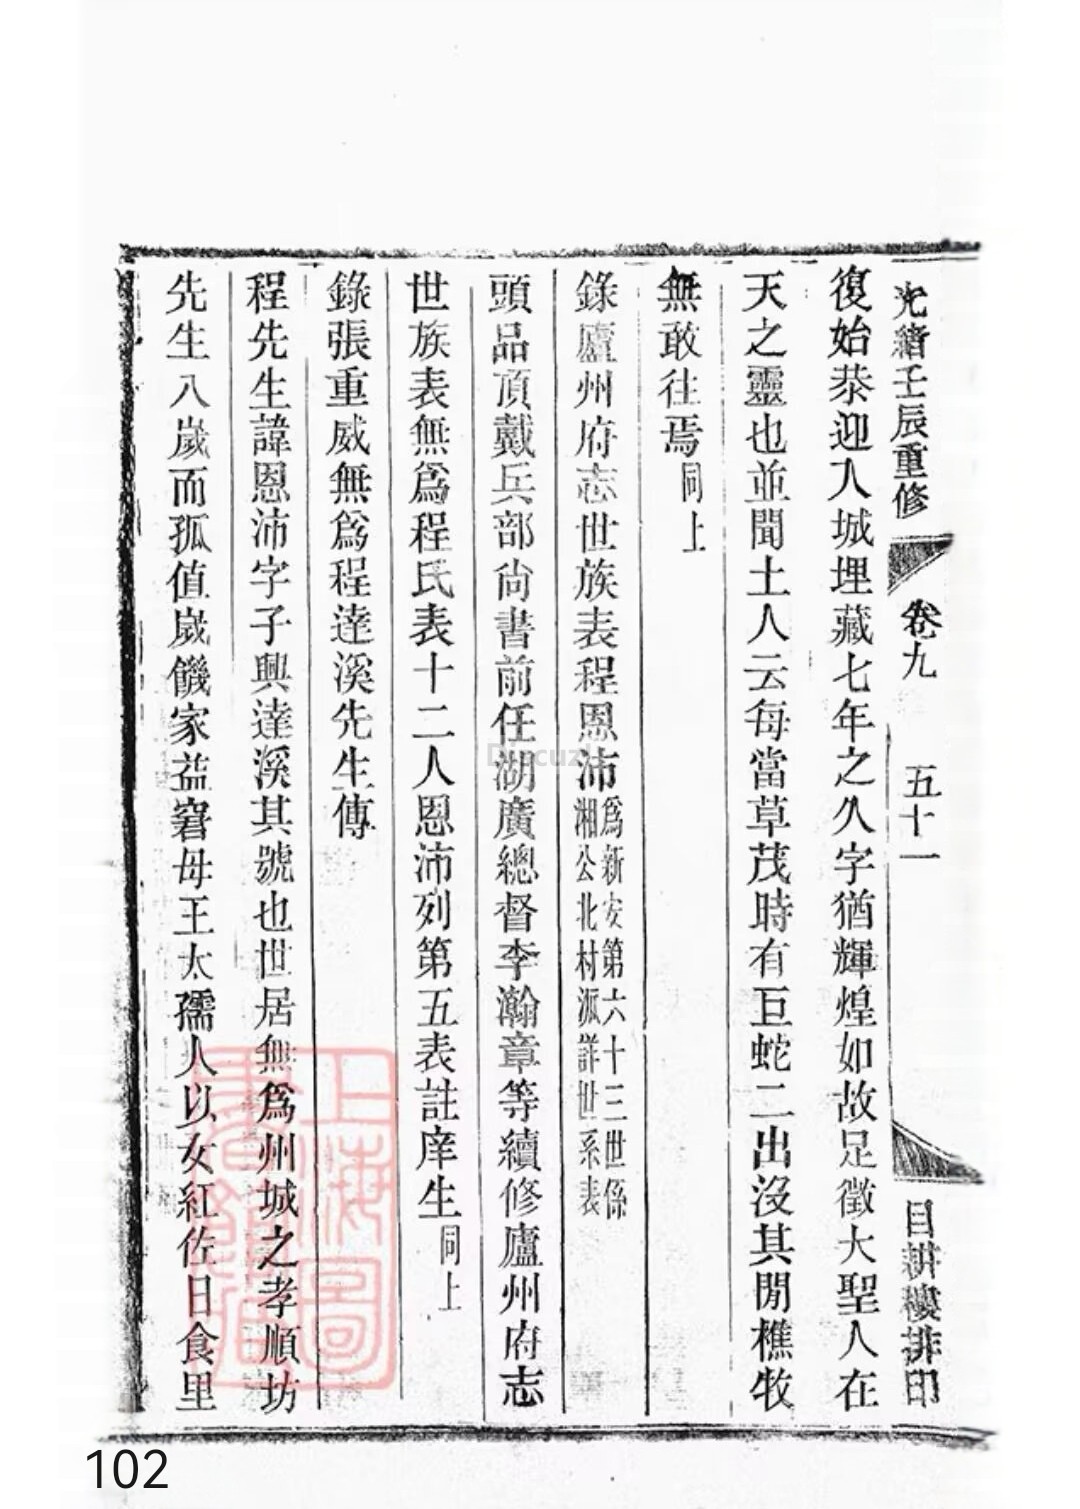 光緒壬辰重修 卷九 五十一 目耕樓排印
復始恭迎入城埋藏七年之久字猶輝煌如故足徵大聖人在
天之靈也並聞土人云每當草茂時有巨蛇二出沒其閒樵牧
無敢往焉同上
錄廬州府志世族表程恩沛為新安第六十三世係湘公北村派詳世系表
頭品頂戴兵部尚書前任湖廣總督李瀚章等續修廬州府志
世族表無為程氏表十二人恩沛列第五表註庠生同上
錄張重威無為程達溪先生傳
程先生諱恩沛字子興達溪其號也世居無為州城之孝順坊
先生八歲而孤值歲饑家益窘母王太孺人以女紅佐日食里
上海圖書館藏
Discuz!
102